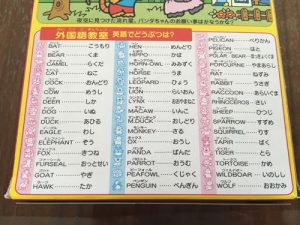 夜空に見つけた流れ星、パンダちゃんのお願い事はかなうかな?
外国語教室 英語でどうぶつは?
BAT こうもり
BEAR くま
CAMEL らくだ
CAT ねこ
COCK おんどり
COW めうし
DEER しか
DOG いぬ
DUCK あひる
EAGLE わし
ELEPHANT ぞう
FOX きつね
FURSEAL おっとせい
GOAT やぎ
HAWK たか
HEN めんどり
HORN-OWL みみずく
HORSE うま
LEOPARD ひょう
LION らいおん
LYNX おおやまねこ
M.DUCK おしどり
MONKEY さる
OX おうし
PANDA ぱんだ
PARROT おうむ
PEAFOWL くじゃく
PENGUIN ぺんぎん
PELICAN ぺりかん
PIGEON はと
POLAR BEAR しろくま
PORCUPINE やまあらし
RAT ねずみ
RABBIT うさぎ
RACCOON あらいぐま
RHINOCEROS さい
SHEEP ひつじ
SPARROW すずめ
SQUIRREL りす
TAPIR ばく
TIGER とら
TORTOISE かめ
WILDBOAR いのしし
WOLF おおかみ